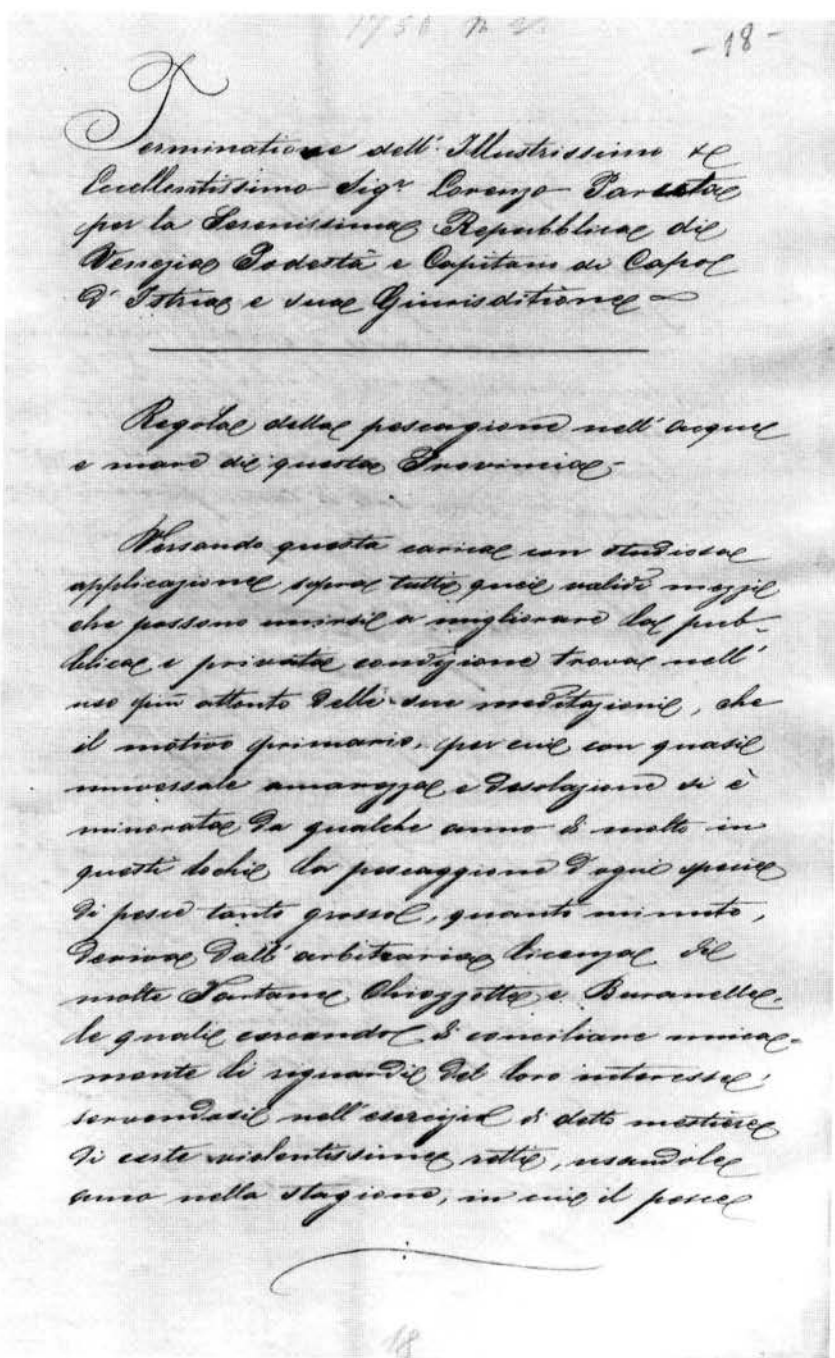 1756
- 18 -
Terminatione dell' Illustrissimo &
Eccellentissimo Sigr Lorenzo Paruta
per la Serenissima Repubblica di
Venezia Podestà e Capitanio di Capo
d' Istria e sua Giurisditione
Regola della pescagione nell' acque
e mare di questa Provincia.
Versando questa carica con studiosa
applicazione sopra tutti quei validi mezzi
che possono unirsi a migliorare la pub-
blica e privata condizione trova nell'
uso più attento delle sue meditazioni, che
il motivo primario, per cui con quasi
universale amarezza e desolazione si è
minorata da qualche anno & molto in
questi lochi la pescaggione d'ogni specie
di pesce tanto grosso, quanto minuto,
deriva dall' arbitraria licenza di
molte Tartane Chiozzotte e Buranelle,
le quali cercando di conciliare unica-
mente li riguardi del loro interesse,
servendosi nell' esercizio di detto mestiere
di certe violentissime retti, usandole
anco nella stagione, in cui il pesce
18